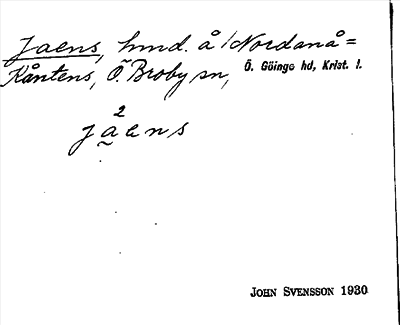 Jaens, hmd. å /Nordanå=
Kåntens, Ö. Broby sn, Ö. Göinge hd, Krist. l.
2
jaens
JOHN SVENSSON 1930